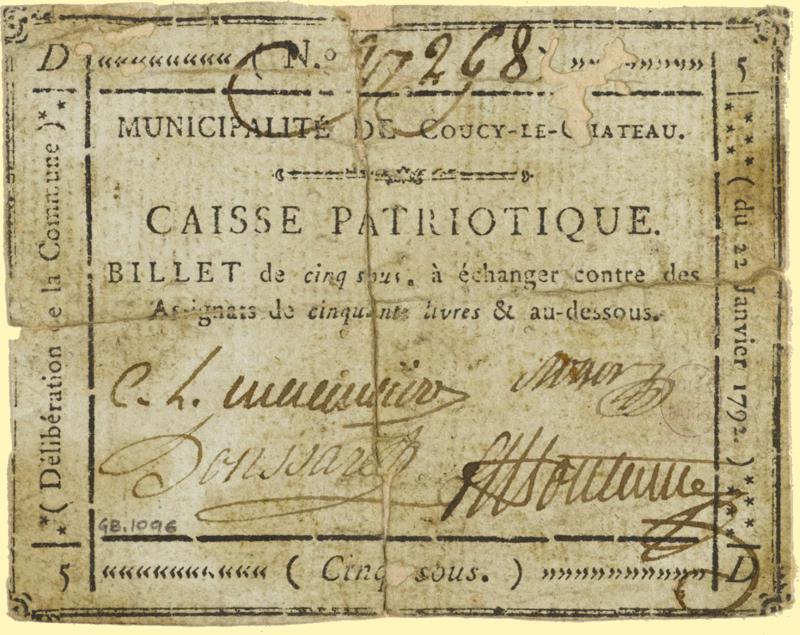 D (N.º 17268) 5
MUNICIPALITÉ DE COUCY-LE-CHATEAU.
CAISSE PATRIOTIQUE.
BILLET de cinq sous. à échanger contre des
Assignats de cinquante livres & au-dessous.
C. L.
Doussaret
GB.1096
5 (Cinq sous.) D
(Délibération de la Commune)
(du 22 Janvier 1792.)